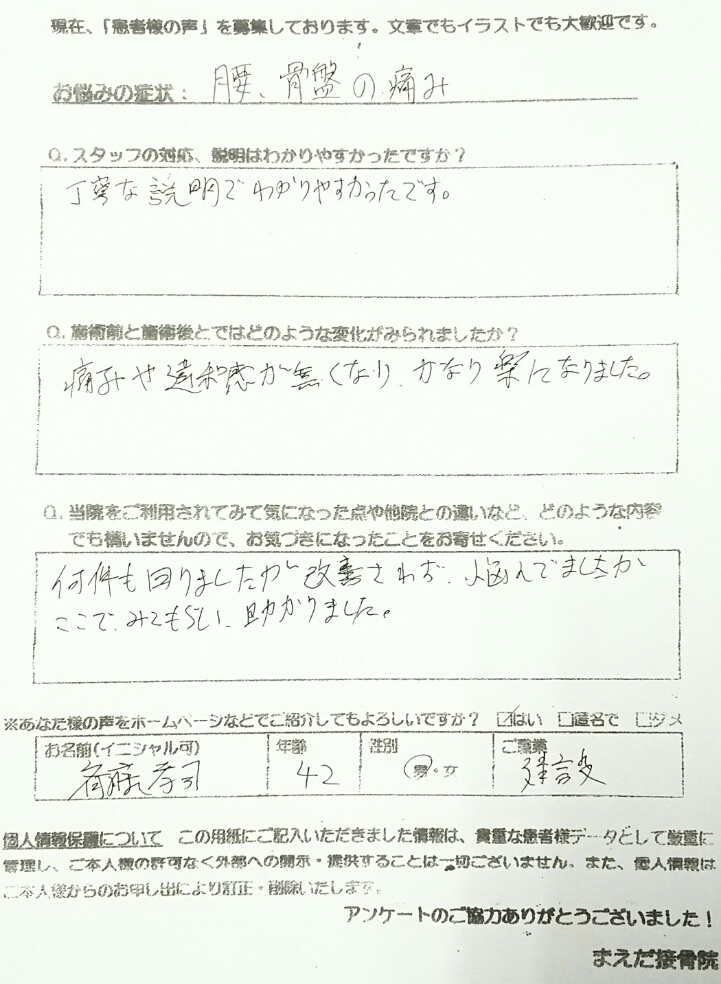 現在、「患者様の声」を募集しております。文章でもイラストでも大歓迎です。
お悩みの症状： 腰、骨盤の痛み
Q. スタッフの対応、説明はわかりやすかったですか？
丁寧な説明でわかりやすかったです。
Q. 施術前と施術後とではどのような変化がみられましたか？
痛みや違和感が無くなり、かなり楽になりました。
Q. 当院をご利用されてみて気になった点や他院との違いなど、どのような内容
でも構いませんので、お気づきになったことをお寄せください。
何件も回りましたが改善されず、悩んでましたが
ここで、みてもらい、助かりました。
※あなた様の声をホームページなどでご紹介してもよろしいですか？ ☑はい □匿名で □ダメ
お名前(イニシャル可) 年齢 性別 ご職業
孝司 42 男・女 建設
個人情報保護について この用紙にご記入いただきました情報は、貴重な患者様データとして厳重に
管理し、ご本人様の許可なく外部への開示・提供することは一切ございません。また、個人情報は
ご本人様からのお申し出により訂正・削除いたします。
アンケートのご協力ありがとうございました！
まえだ接骨院